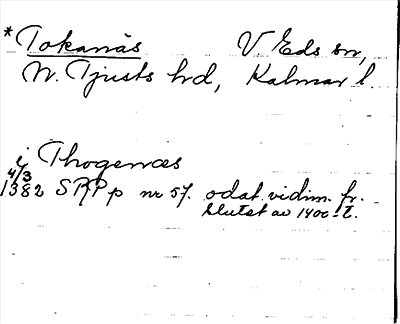 *Tokanäs V. Eds sn,
N. Tjusts hd, Kalmar l.
i Thogenæs
4/3
1382 SRPp nr 57. odat. vidim. fr.
slutet av 1400-t.